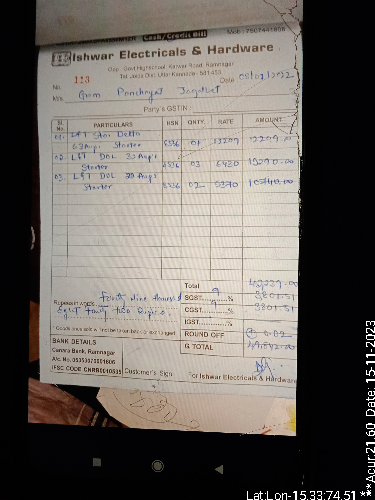 Cash/Credit Bill
Mob : 7507441606
Ishwar Electricals & Hardware
Opp. Govt Highschool, Karwar Road, Ramnagar
Tal. Joida Dist. Uttar Kannada - 581453
No. 113
Date 05/01/2022
M/s Gram Panchayat Jagalbet
Party's GSTIN :
Sl. No. PARTICULARS HSN QNTY. RATE AMOUNT
01. L&T Star Delta
63Amp Starter 8536 01 13209 13209.00
02. L&T DOL 32 Amp
Starter 8536 03 19290.00
03. L&T DOL
Starter 8536 02 5370 10740.00
Total
Rupees in words. Fourty nine thousand SGST 9 % 3801.51
Eight Fourty two Rupees CGST 9 % 3801.51
IGST %
Goods once sold will not be taken back or exchanged. ROUND OFF
G TOTAL
BANK DETAILS
Canara Bank, Ramnagar
A/c. No. 05353070001606
IFSC CODE CNRB0010535
Customer's Sign
For Ishwar Electricals & Hardware
Acur:21.60 Date: 15-11-2023
Lat:Lon-15.33:74.51 ***